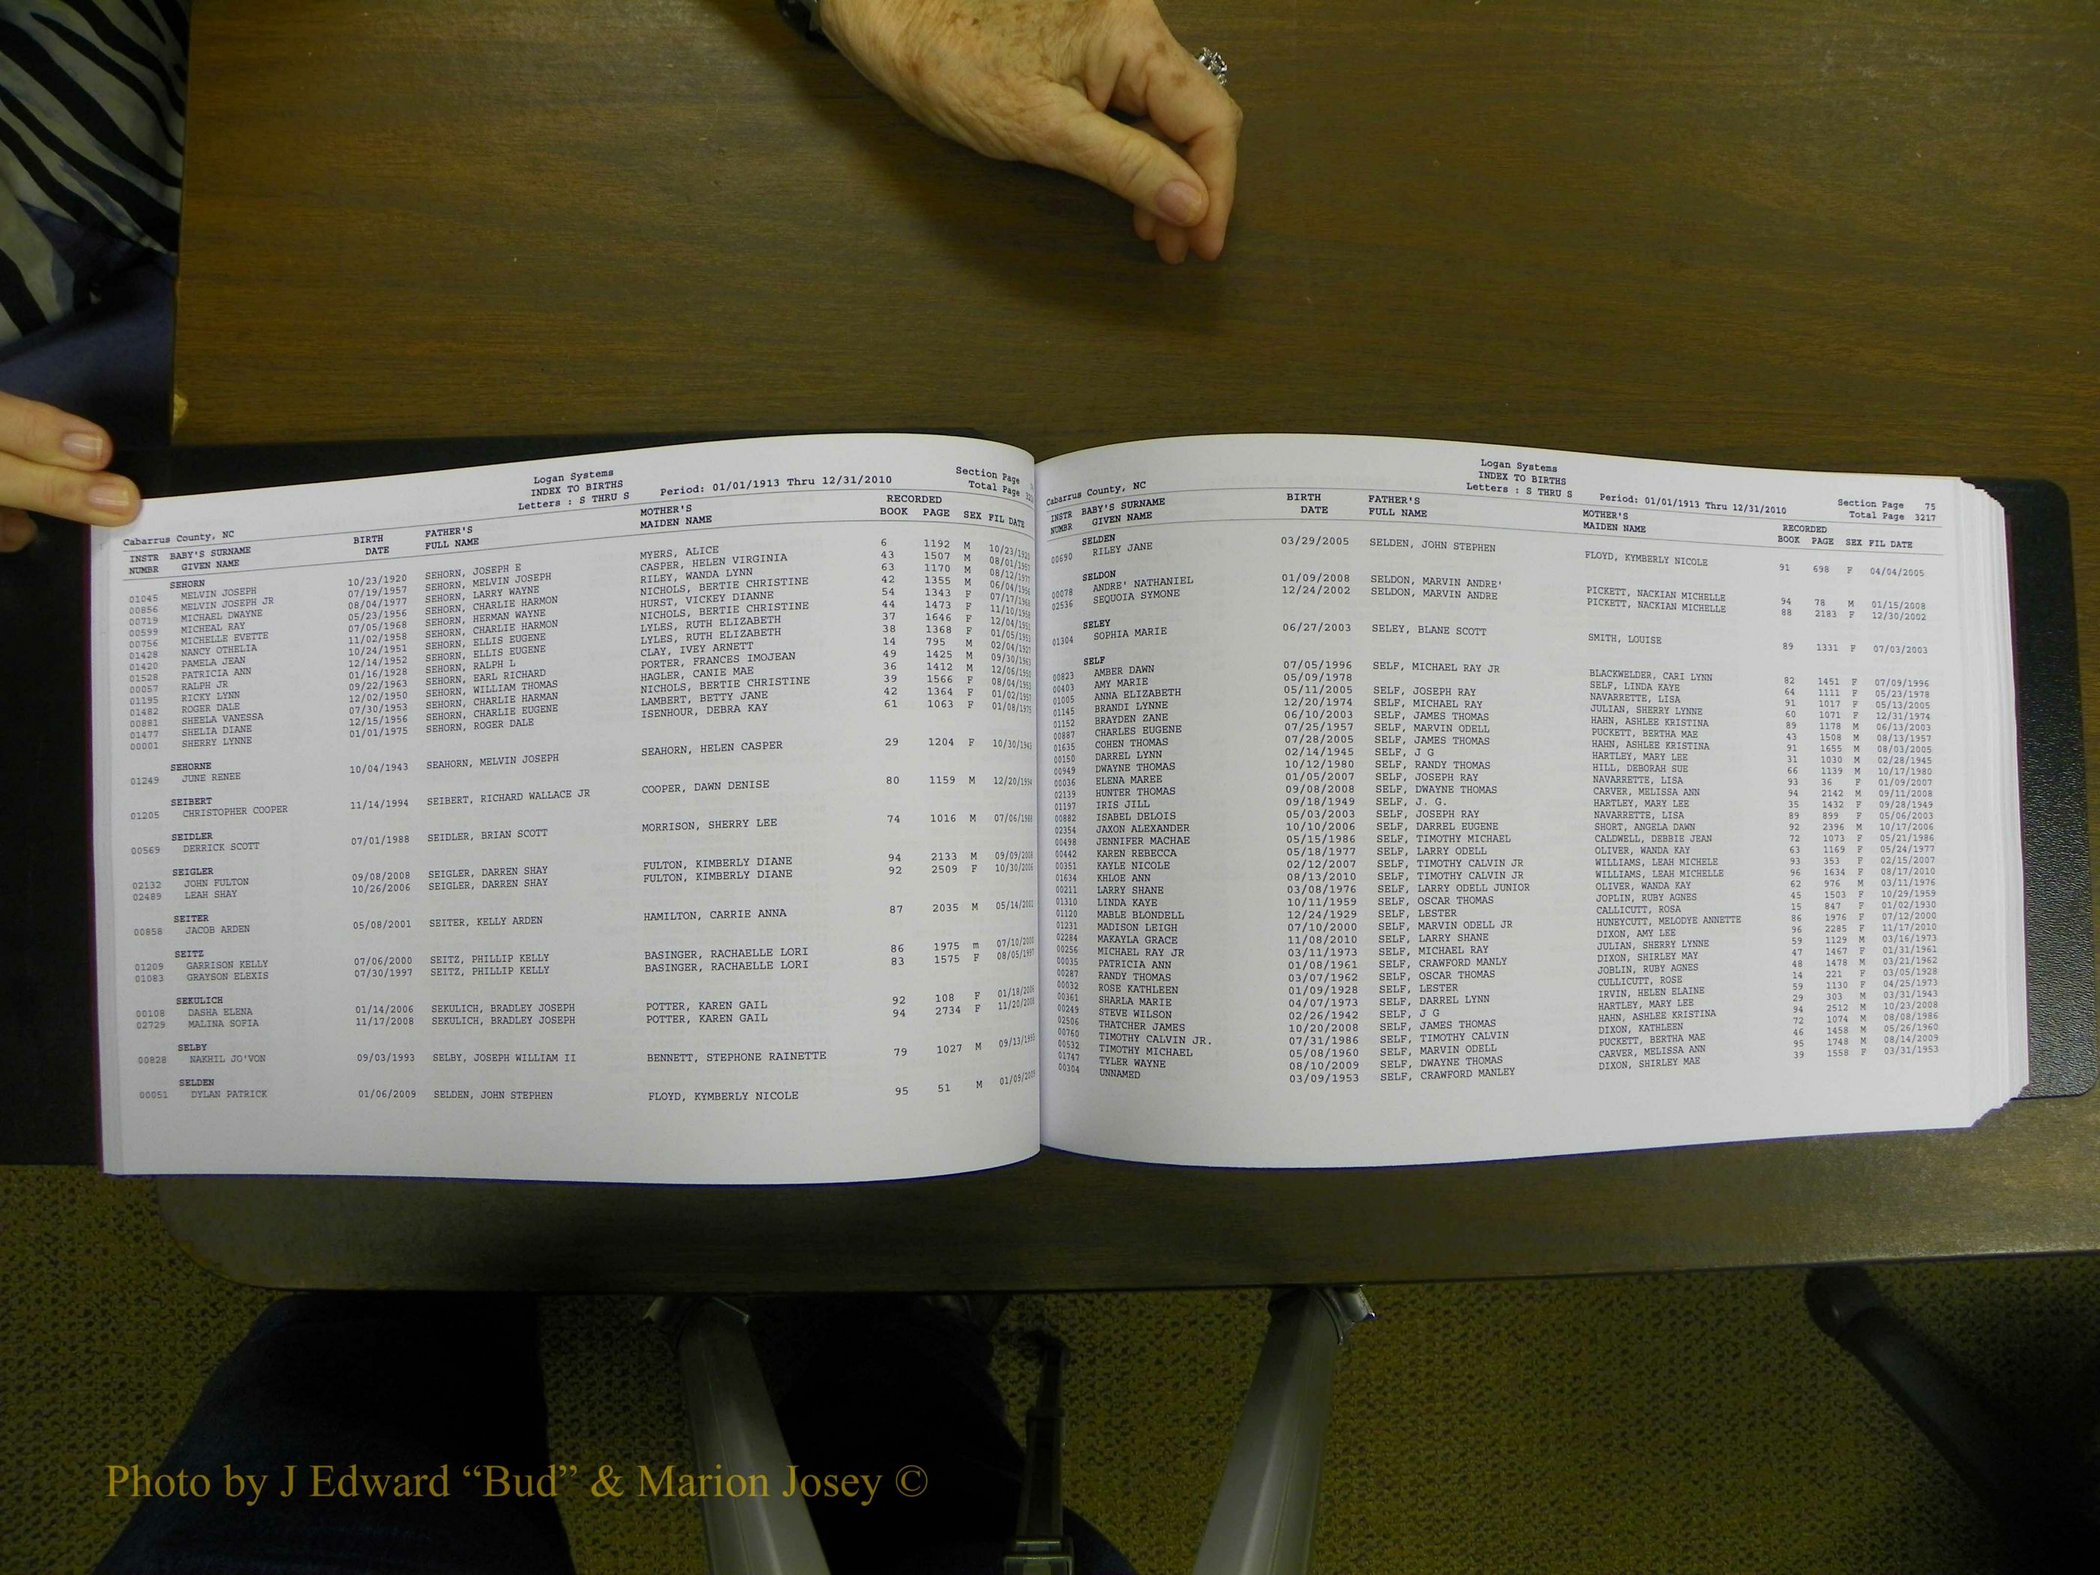 Logan Systems
INDEX TO BIRTHS
Letters : S THRU S Period: 01/01/1913 Thru 12/31/2010
Section Page
Total Page
Cabarrus County, NC
INSTR BABY'S SURNAME BIRTH FATHER'S MOTHER'S RECORDED
NUMBR GIVEN NAME DATE FULL NAME MAIDEN NAME BOOK PAGE SEX FIL DATE
SEHORN
01045 MELVIN JOSEPH 10/23/1920 SEHORN, JOSEPH E MYERS, ALICE 6 1192 M 10/23/1920
00856 MELVIN JOSEPH JR 07/19/1957 SEHORN, MELVIN JOSEPH CASPER, HELEN VIRGINIA 43 1507 M 08/01/1957
00719 MICHAEL DWAYNE 08/04/1977 SEHORN, LARRY WAYNE RILEY, WANDA LYNN 63 1170 M 08/12/1977
00599 MICHEAL RAY 05/23/1956 SEHORN, CHARLIE HARMON NICHOLS, BERTIE CHRISTINE 42 1355 M 06/04/1956
00756 MICHELLE EVETTE 07/05/1968 SEHORN, HERMAN WAYNE HURST, VICKEY DIANNE 54 1343 F 07/17/1968
01428 NANCY OTHELIA 11/02/1958 SEHORN, CHARLIE HARMON NICHOLS, BERTIE CHRISTINE 44 1473 F 11/10/1958
01420 PAMELA JEAN 10/24/1951 SEHORN, ELLIS EUGENE LYLES, RUTH ELIZABETH 37 1646 F 12/04/1951
01528 PATRICIA ANN 12/14/1952 SEHORN, ELLIS EUGENE LYLES, RUTH ELIZABETH 38 1368 F 01/05/1953
00057 RALPH JR 01/16/1928 SEHORN, RALPH L CLAY, IVEY ARNETT 14 795 M
01195 RICKY LYNN 09/22/1963 SEHORN, EARL RICHARD PORTER, FRANCES IMOJEAN 49 1425 M 09/30/1963
01482 ROGER DALE 12/02/1950 SEHORN, WILLIAM THOMAS HAGLER, CANIE MAE 36 1412 M 12/06/1950
00881 SHEELA VANESSA 07/30/1953 SEHORN, CHARLIE HARMAN NICHOLS, BERTIE CHRISTINE 39 1566 F 08/04/1953
01477 SHELIA DIANE 12/15/1956 SEHORN, CHARLIE EUGENE LAMBERT, BETTY JANE 42 1364 F 01/02/1957
00001 SHERRY LYNNE 01/01/1975 SEHORN, ROGER DALE ISENHOUR, DEBRA KAY 61 1063 F 01/08/1975
SEHORNE
01249 JUNE RENEE 10/04/1943 SEAHORN, MELVIN JOSEPH SEAHORN, HELEN CASPER 29 1204 F 10/30/1943
SEIBERT
01205 CHRISTOPHER COOPER 11/14/1994 SEIBERT, RICHARD WALLACE JR COOPER, DAWN DENISE 80 1159 M 12/20/1994
SEIDLER
00569 DERRICK SCOTT 07/01/1988 SEIDLER, BRIAN SCOTT MORRISON, SHERRY LEE 74 1016 M 07/06/1988
SEIGLER
02132 JOHN FULTON 09/08/2008 SEIGLER, DARREN SHAY FULTON, KIMBERLY DIANE 94 2133 M 09/09/2008
02489 LEAH SHAY 10/26/2006 SEIGLER, DARREN SHAY FULTON, KIMBERLY DIANE 92 2509 F 10/30/2006
SEITER
00858 JACOB ARDEN 05/08/2001 SEITER, KELLY ARDEN HAMILTON, CARRIE ANNA 87 2035 M 05/14/2001
SEITZ
01209 GARRISON KELLY 07/06/2000 SEITZ, PHILLIP KELLY BASINGER, RACHAELLE LORI 86 1975 m 07/10/2000
01083 GRAYSON ELEXIS 07/30/1997 SEITZ, PHILLIP KELLY BASINGER, RACHAELLE LORI 83 1575 F 08/05/1997
SEKULICH
00108 DASHA ELENA 01/14/2006 SEKULICH, BRADLEY JOSEPH POTTER, KAREN GAIL 92 108 F 01/18/2006
02729 MALINA SOFIA 11/17/2008 SEKULICH, BRADLEY JOSEPH POTTER, KAREN GAIL 94 2734 F 11/20/2008
SELBY
00828 NAKHIL JO'VON 09/03/1993 SELBY, JOSEPH WILLIAM II BENNETT, STEPHONE RAINETTE 79 1027 M 09/13/1993
SELDEN
00051 DYLAN PATRICK 01/06/2009 SELDEN, JOHN STEPHEN FLOYD, KYMBERLY NICOLE 95 51 M 01/09/2009
Logan Systems
INDEX TO BIRTHS
Letters : S THRU S Period: 01/01/1913 Thru 12/31/2010
Section Page 75
Total Page 3217
Cabarrus County, NC
INSTR BABY'S SURNAME BIRTH FATHER'S MOTHER'S RECORDED
NUMBR GIVEN NAME DATE FULL NAME MAIDEN NAME BOOK PAGE SEX FIL DATE
SELDEN
00690 RILEY JANE 03/29/2005 SELDEN, JOHN STEPHEN FLOYD, KYMBERLY NICOLE 91 698 F 04/04/2005
SELDON
00078 ANDRE' NATHANIEL 01/09/2008 SELDON, MARVIN ANDRE' PICKETT, NACKIAN MICHELLE 94 78 M 01/15/2008
02536 SEQUOIA SYMONE 12/24/2002 SELDON, MARVIN ANDRE PICKETT, NACKIAN MICHELLE 88 2183 F 12/30/2002
SELEY
01304 SOPHIA MARIE 06/27/2003 SELEY, BLANE SCOTT SMITH, LOUISE 89 1331 F 07/03/2003
SELF
00823 AMBER DAWN 07/05/1996 SELF, MICHAEL RAY JR BLACKWELDER, CARI LYNN 82 1451 F 07/09/1996
00403 AMY MARIE 05/09/1978 SELF, LINDA KAYE 64 1111 F 05/23/1978
01005 ANNA ELIZABETH 05/11/2005 SELF, JOSEPH RAY NAVARRETTE, LISA 91 1017 F 05/13/2005
01145 BRANDI LYNNE 12/20/1974 SELF, MICHAEL RAY JULIAN, SHERRY LYNNE 60 1071 F 12/31/1974
01152 BRAYDEN ZANE 06/10/2003 SELF, JAMES THOMAS HAHN, ASHLEE KRISTINA 89 1178 M 06/13/2003
00887 CHARLES EUGENE 07/25/1957 SELF, MARVIN ODELL PUCKETT, BERTHA MAE 43 1508 M 08/13/1957
01635 COHEN THOMAS 07/28/2005 SELF, JAMES THOMAS HAHN, ASHLEE KRISTINA 91 1655 M 08/03/2005
00150 DARREL LYNN 02/14/1945 SELF, J G HARTLEY, MARY LEE 31 1030 M 02/28/1945
00949 DWAYNE THOMAS 10/12/1980 SELF, RANDY THOMAS HILL, DEBORAH SUE 66 1139 M 10/17/1980
00036 ELENA MAREE 01/05/2007 SELF, JOSEPH RAY NAVARRETTE, LISA 93 36 F 01/09/2007
02139 HUNTER THOMAS 09/08/2008 SELF, DWAYNE THOMAS CARVER, MELISSA ANN 94 2142 M 09/11/2008
01197 IRIS JILL 09/18/1949 SELF, J. G. HARTLEY, MARY LEE 35 1432 F 09/28/1949
00882 ISABEL DELOIS 05/03/2003 SELF, JOSEPH RAY NAVARRETTE, LISA 89 899 F 05/06/2003
02354 JAXON ALEXANDER 10/10/2006 SELF, DARREL EUGENE SHORT, ANGELA DAWN 92 2396 M 10/17/2006
00498 JENNIFER MACHAE 05/15/1986 SELF, TIMOTHY MICHAEL CALDWELL, DEBBIE JEAN 72 1073 F 05/21/1986
00442 KAREN REBECCA 05/18/1977 SELF, LARRY ODELL OLIVER, WANDA KAY 63 1169 F 05/24/1977
00351 KAYLE NICOLE 02/12/2007 SELF, TIMOTHY CALVIN JR WILLIAMS, LEAH MICHELE 93 353 F 02/15/2007
01634 KHLOE ANN 08/13/2010 SELF, TIMOTHY CALVIN JR WILLIAMS, LEAH MICHELLE 96 1634 F 08/17/2010
00211 LARRY SHANE 03/08/1976 SELF, LARRY ODELL JUNIOR OLIVER, WANDA KAY 62 976 M 03/11/1976
01310 LINDA KAYE 10/11/1959 SELF, OSCAR THOMAS JOPLIN, RUBY AGNES 45 1503 F 10/29/1959
01120 MABLE BLONDELL 12/24/1929 SELF, LESTER CALLICUTT, ROSA 15 847 F 01/02/1930
01231 MADISON LEIGH 07/10/2000 SELF, MARVIN ODELL JR HUNEYCUTT, MELODYE ANNETTE 86 1976 F 07/12/2000
02284 MAKAYLA GRACE 11/08/2010 SELF, LARRY SHANE DIXON, AMY LEE 96 2285 F 11/17/2010
00256 MICHAEL RAY JR 03/11/1973 SELF, MICHAEL RAY JULIAN, SHERRY LYNNE 59 1129 M 03/16/1973
00035 PATRICIA ANN 01/08/1961 SELF, CRAWFORD MANLY DIXON, SHIRLEY MAY 47 1467 F 01/31/1961
00287 RANDY THOMAS 03/07/1962 SELF, OSCAR THOMAS JOBLIN, RUBY AGNES 48 1478 M 03/21/1962
00032 ROSE KATHLEEN 01/09/1928 SELF, LESTER CULLICUTT, ROSE 14 221 F 03/05/1928
00361 SHARLA MARIE 04/07/1973 SELF, DARREL LYNN IRVIN, HELEN ELAINE 59 1130 F 04/25/1973
00249 STEVE WILSON 02/26/1942 SELF, J G HARTLEY, MARY LEE 29 303 M 03/31/1943
02506 THATCHER JAMES 10/20/2008 SELF, JAMES THOMAS HAHN, ASHLEE KRISTINA 94 2512 M 10/23/2008
00760 TIMOTHY CALVIN JR. 07/31/1986 SELF, TIMOTHY CALVIN DIXON, KATHLEEN 72 1074 M 08/08/1986
00532 TIMOTHY MICHAEL 05/08/1960 SELF, MARVIN ODELL PUCKETT, BERTHA MAE 46 1458 M 05/26/1960
01747 TYLER WAYNE 08/10/2009 SELF, DWAYNE THOMAS CARVER, MELISSA ANN 95 1748 M 08/14/2009
00304 UNNAMED 03/09/1953 SELF, CRAWFORD MANLEY DIXON, SHIRLEY MAE 39 1558 F 03/31/1953
Photo by J Edward “Bud” & Marion Josey ©